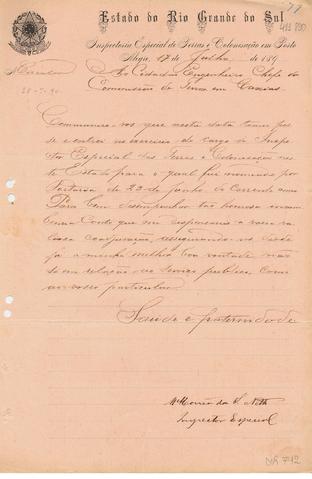 77
Estado do Rio Grande do Sul
Inspectoria Especial de Terras e Colonisação em Porto
Alegre, 17 de Julho de 189
Circular
Ao Cidadão Engenheiro Chefe da
Commissão de Terras em Caxias
Communico-vos que nesta data tomei pos-
se e entrei no exercicio do cargo de Inspe-
ctor Especial das Terras e Colonisação nes-
te Estado para o qual fui nomeado por
Portaria de 23 de Junho do corrente anno
Para bem desempenhar tão honrosa incum-
bencia conto que me dispensareis a vossa va-
liosa coadjuvação, assegurando-vos desde
já a minha melhor boa vontade não
só em relação ao serviço publico como
ao vosso particular.
Saude e fraternidade
da S. Netto
Inspector Especial
712